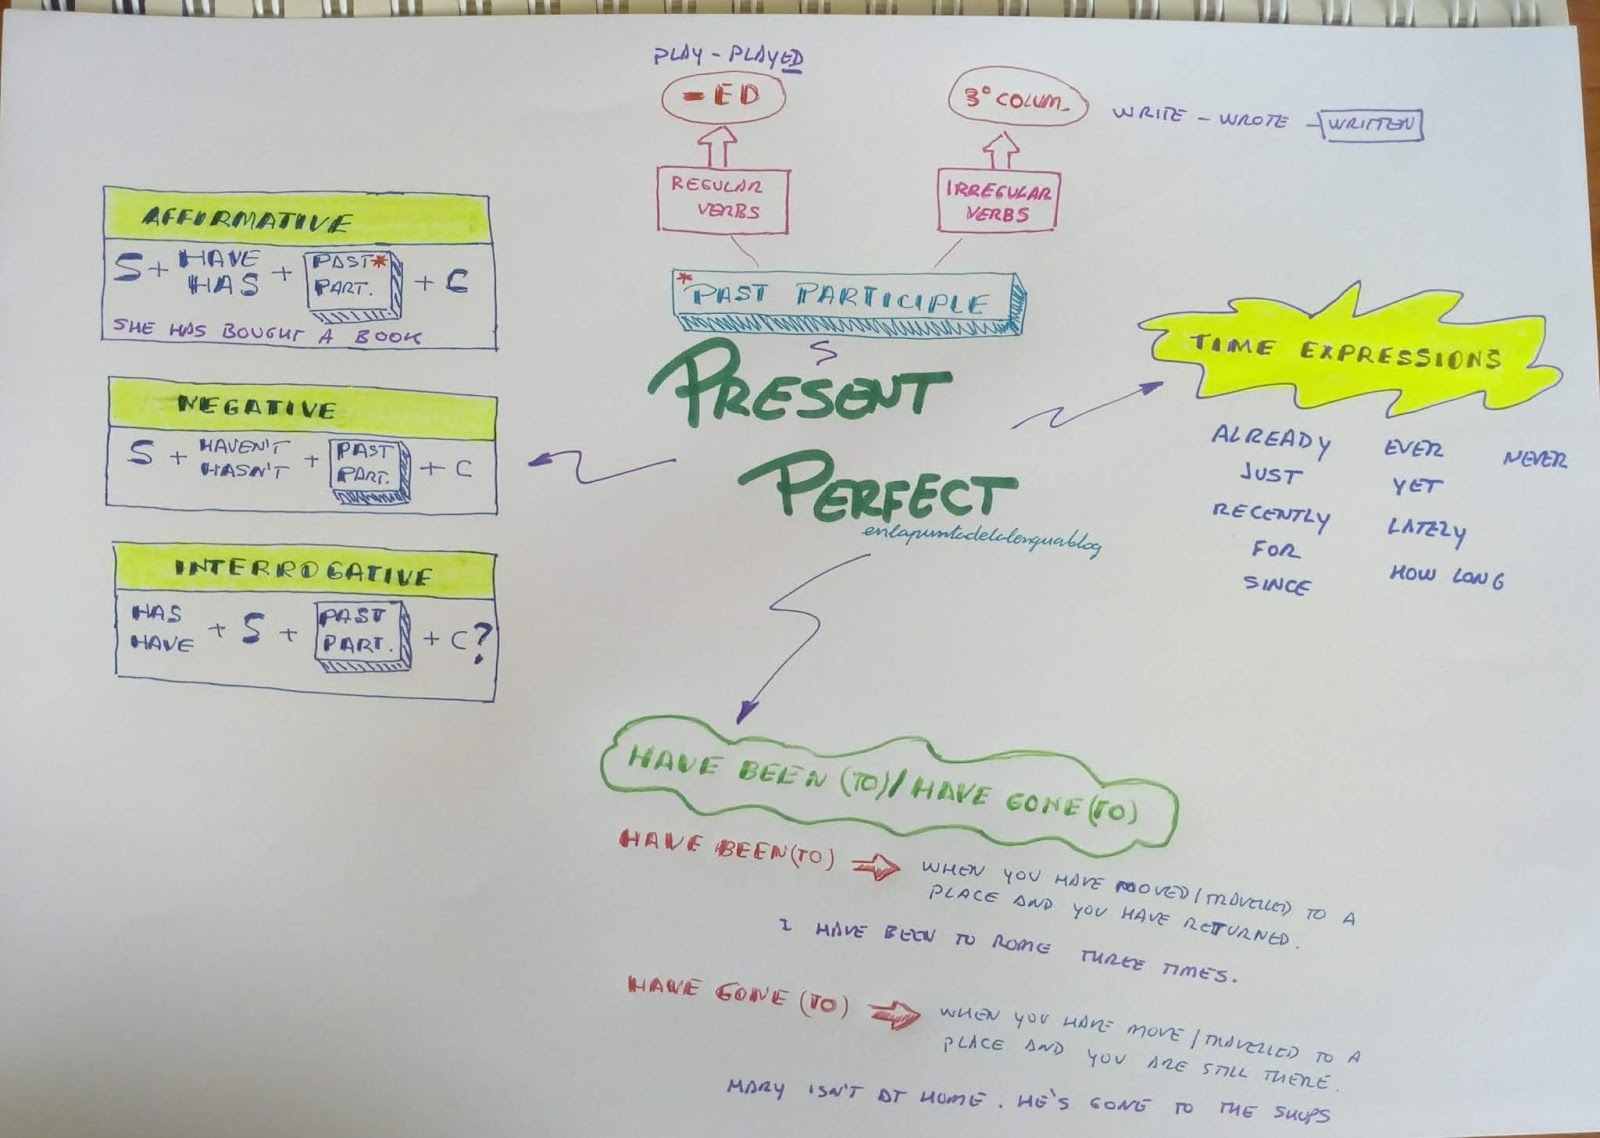 PLAY - PLAYED
-ED
3º COLUM.
WRITE - WROTE - WRITTEN
REGULAR
VERBS
IRREGULAR
VERBS
* PAST PARTICIPLE
S
PRESENT
PERFECT
enlapuntadelalenguablog
AFFIRMATIVE
S + HAVE
HAS + PAST*
PART. + C
SHE HAS BOUGHT A BOOK
NEGATIVE
S + HAVEN'T
HASN'T + PAST
PART. + C
INTERROGATIVE
HAS
HAVE + S + PAST
PART. + C?
TIME EXPRESSIONS
ALREADY EVER NEVER
JUST YET
RECENTLY LATELY
FOR
SINCE HOW LONG
HAVE BEEN (TO) / HAVE GONE (TO)
HAVE BEEN (TO) ⇒ WHEN YOU HAVE MOVED / TRAVELLED TO A
PLACE AND YOU HAVE RETURNED.
I HAVE BEEN TO ROME THREE TIMES.
HAVE GONE (TO) ⇒ WHEN YOU HAVE MOVE / TRAVELLED TO A
PLACE AND YOU ARE STILL THERE.
MARY ISN'T AT HOME. HE'S GONE TO THE SHOPS